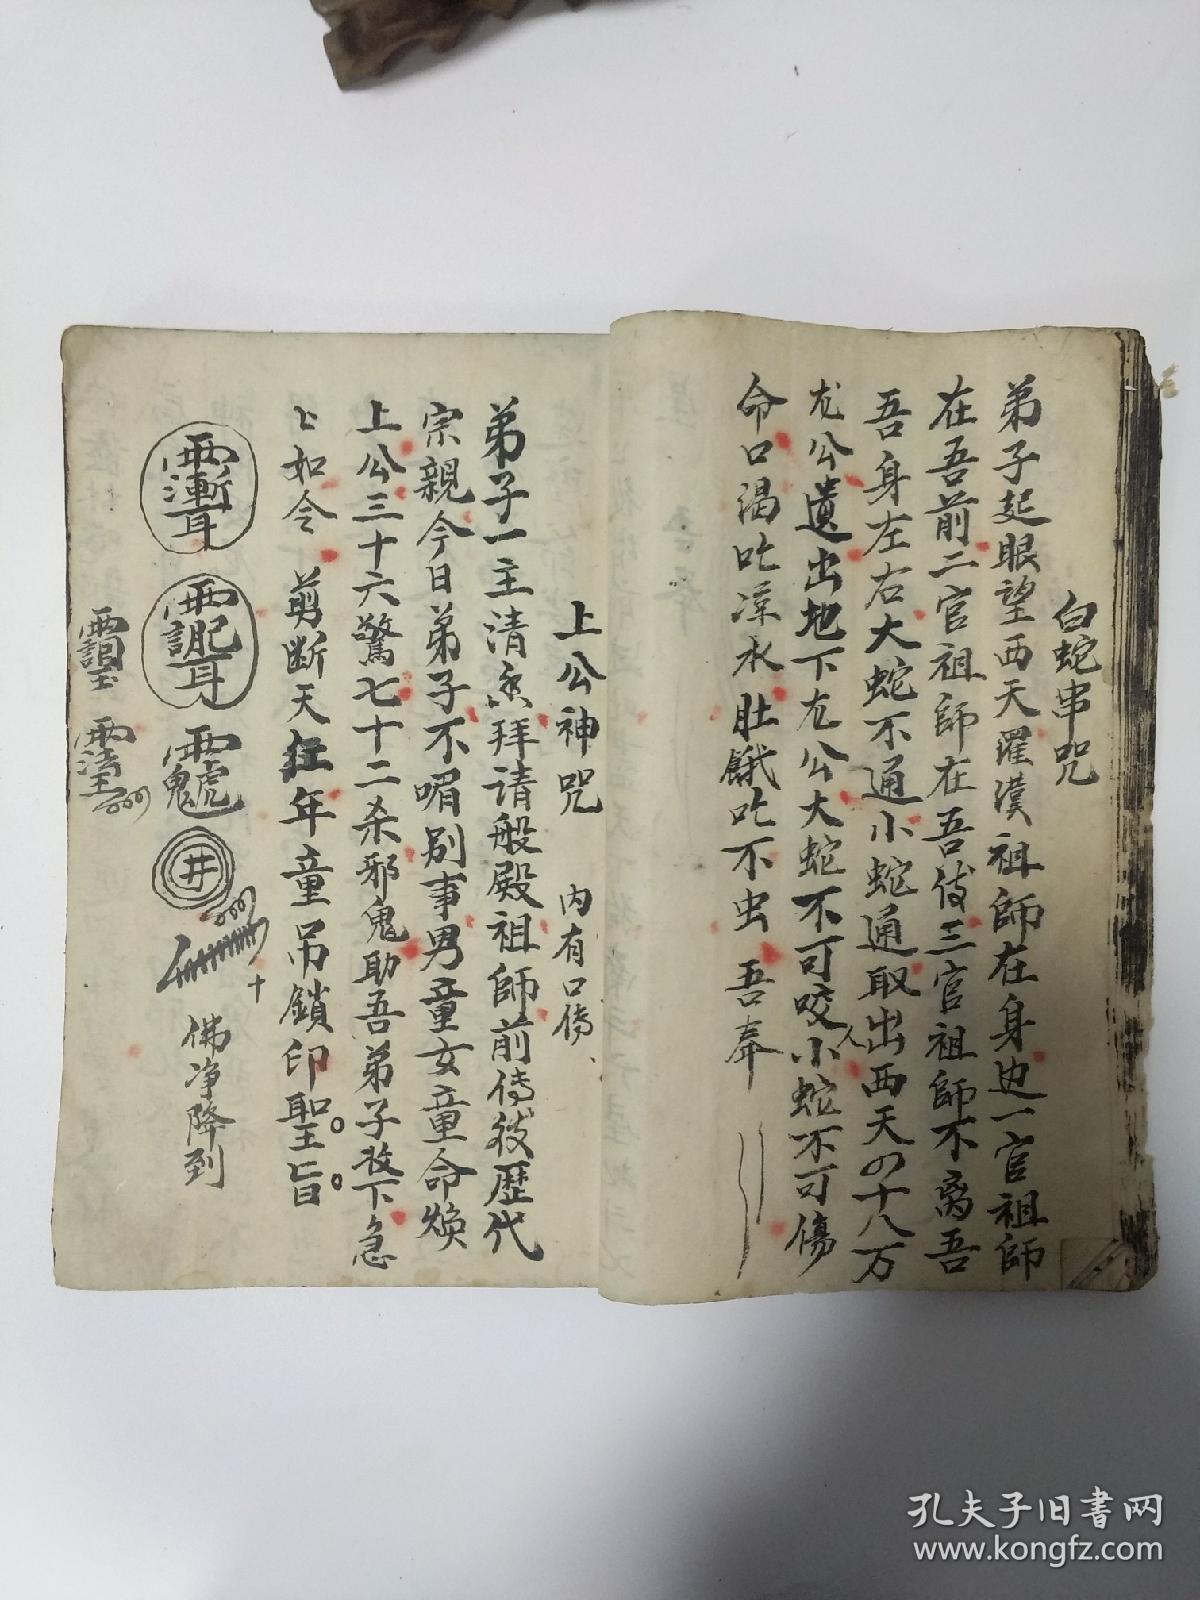 白蛇串咒
弟子起眼望西天羅漢祖師在身边一官祖師
在吾前二官祖師在吾後三官祖師不离吾
吾身左右大蛇不通小蛇通取出西天四十八万
尤公遺出地下尤公大蛇不可咬人小蛇不可傷
命口渴吃凉水肚餓吃不虫 吾奉
上公神咒 内有口傳
弟子一主清香拜請般殿祖師前傳後歷代
宗親今日弟子不喟别事男童女童命煥
上公三十六驚七十二杀邪鬼助吾弟子敄下急
匕如令 剪斷天狂年童吊鎖印聖旨
井
佛净降到
孔夫子旧书网
www.kongfz.com